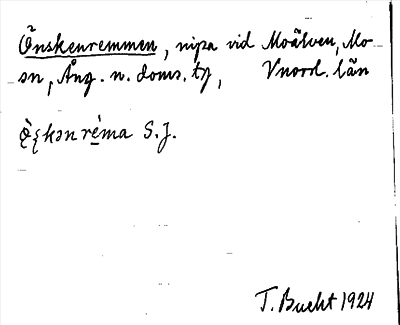 Önskenremmen, nipa vid Moälven, Mo-
sn, Ång. n. doms. tg, Vnord. län
ö̀ʂkən rè̱ma S.J.
T. Bucht 1924